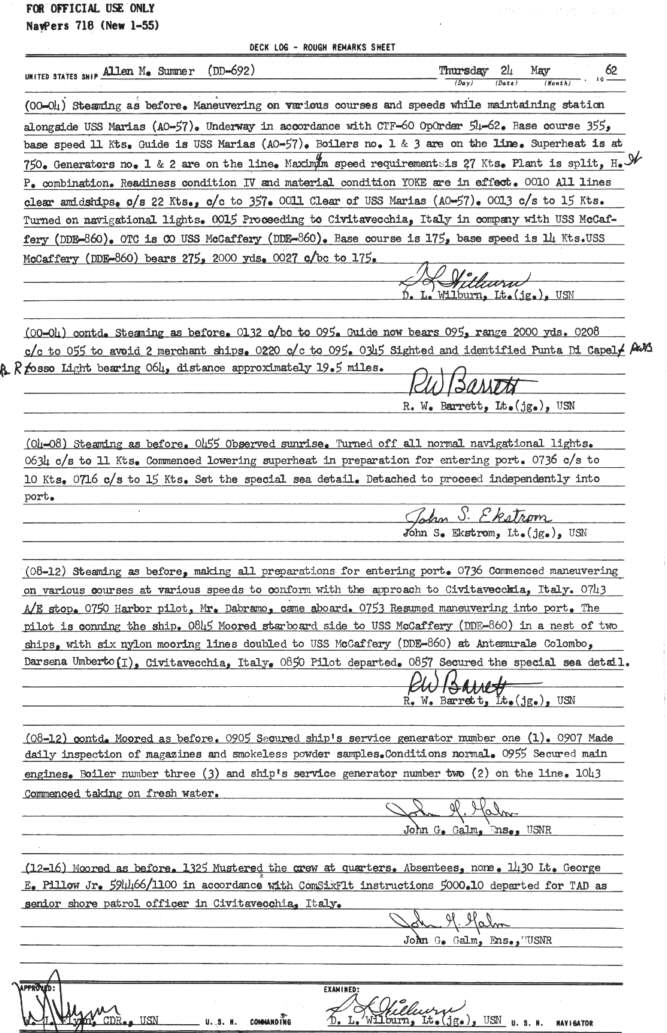 FOR OFFICIAL USE ONLY
NavPers 718 (New 1-55)
DECK LOG – ROUGH REMARKS SHEET
UNITED STATES SHIP Allen M. Sumner (DD-692) Thursday 24 May 19 62
(Day) (Date) (Month)
(00-04) Steaming as before. Maneuvering on various courses and speeds while maintaining station
alongside USS Marias (AO-57). Underway in accordance with CTF-60 OpOrder 54-62. Base course 355,
base speed 11 Kts. Guide is USS Marias (AO-57). Boilers no. 1 & 3 are on the line. Superheat is at
750. Generators no. 1 & 2 are on the line. Maximum speed requirement is 27 Kts. Plant is split, H.
P. combination. Readiness condition IV and material condition YOKE are in effect. 0010 All lines
clear amidships. c/s 22 Kts., c/c to 357. 0011 Clear of USS Marias (AO-57). 0013 c/s to 15 Kts.
Turned on navigational lights. 0015 Proceeding to Civitavecchia, Italy in company with USS McCaf-
fery (DDE-860). OTC is CO USS McCaffery (DDE-860). Base course is 175, base speed is 14 Kts.USS
McCaffery (DDE-860) bears 275, 2000 yds. 0027 c/bc to 175.
D L Wilburn
D. L. Wilburn, Lt.(jg.), USN
(00-04) contd. Steaming as before. 0132 c/bc to 095. Guide now bears 095, range 2000 yds. 0208
c/c to 055 to avoid 2 merchant ships. 0220 c/c to 095. 0345 Sighted and identified Punta Di Capel RWB
R fosso Light bearing 064, distance approximately 19.5 miles.
RW Barrett
R. W. Barrett, Lt.(jg.), USN
(04-08) Steaming as before. 0455 Observed sunrise. Turned off all normal navigational lights.
0634 c/s to 11 Kts. Commenced lowering superheat in preparation for entering port. 0736 c/s to
10 Kts. 0716 c/s to 15 Kts. Set the special sea detail. Detached to proceed independently into
port.
John S. Ekstrom
John S. Ekstrom, Lt.(jg.), USN
(08-12) Steaming as before, making all preparations for entering port. 0736 Commenced maneuvering
on various courses at various speeds to conform with the approach to Civitavecchia, Italy. 0743
A/E stop. 0750 Harbor pilot, Mr. Dabramo, came aboard. 0753 Resumed maneuvering into port. The
pilot is conning the ship. 0845 Moored starboard side to USS McCaffery (DDE-860) in a nest of two
ships, with six nylon mooring lines doubled to USS McCaffery (DDE-860) at Antemurale Colombo,
Darsena Umberto(I), Civitavecchia, Italy. 0850 Pilot departed. 0857 Secured the special sea detail.
RW Barrett
R. W. Barrett, Lt.(jg.), USN
(08-12) contd. Moored as before. 0905 Secured ship's service generator number one (1). 0907 Made
daily inspection of magazines and smokeless powder samples.Conditions normal. 0955 Secured main
engines. Boiler number three (3) and ship's service generator number two (2) on the line. 1043
Commenced taking on fresh water.
John G. Galm
John G. Galm, Ens., USNR
(12-16) Moored as before. 1325 Mustered the crew at quarters. Absentees, none. 1430 Lt. George
E. Pillow Jr. 594466/1100 in accordance with ComSixFlt instructions 5000.10 departed for TAD as
senior shore patrol officer in Civitavecchia, Italy.
John G. Galm
John G. Galm, Ens., USNR
APPROVED: EXAMINED:
CDR., USN U. S. N. COMMANDING D. L. Wilburn, Lt.(jg.), USN U. S. N. NAVIGATOR
D L Wilburn